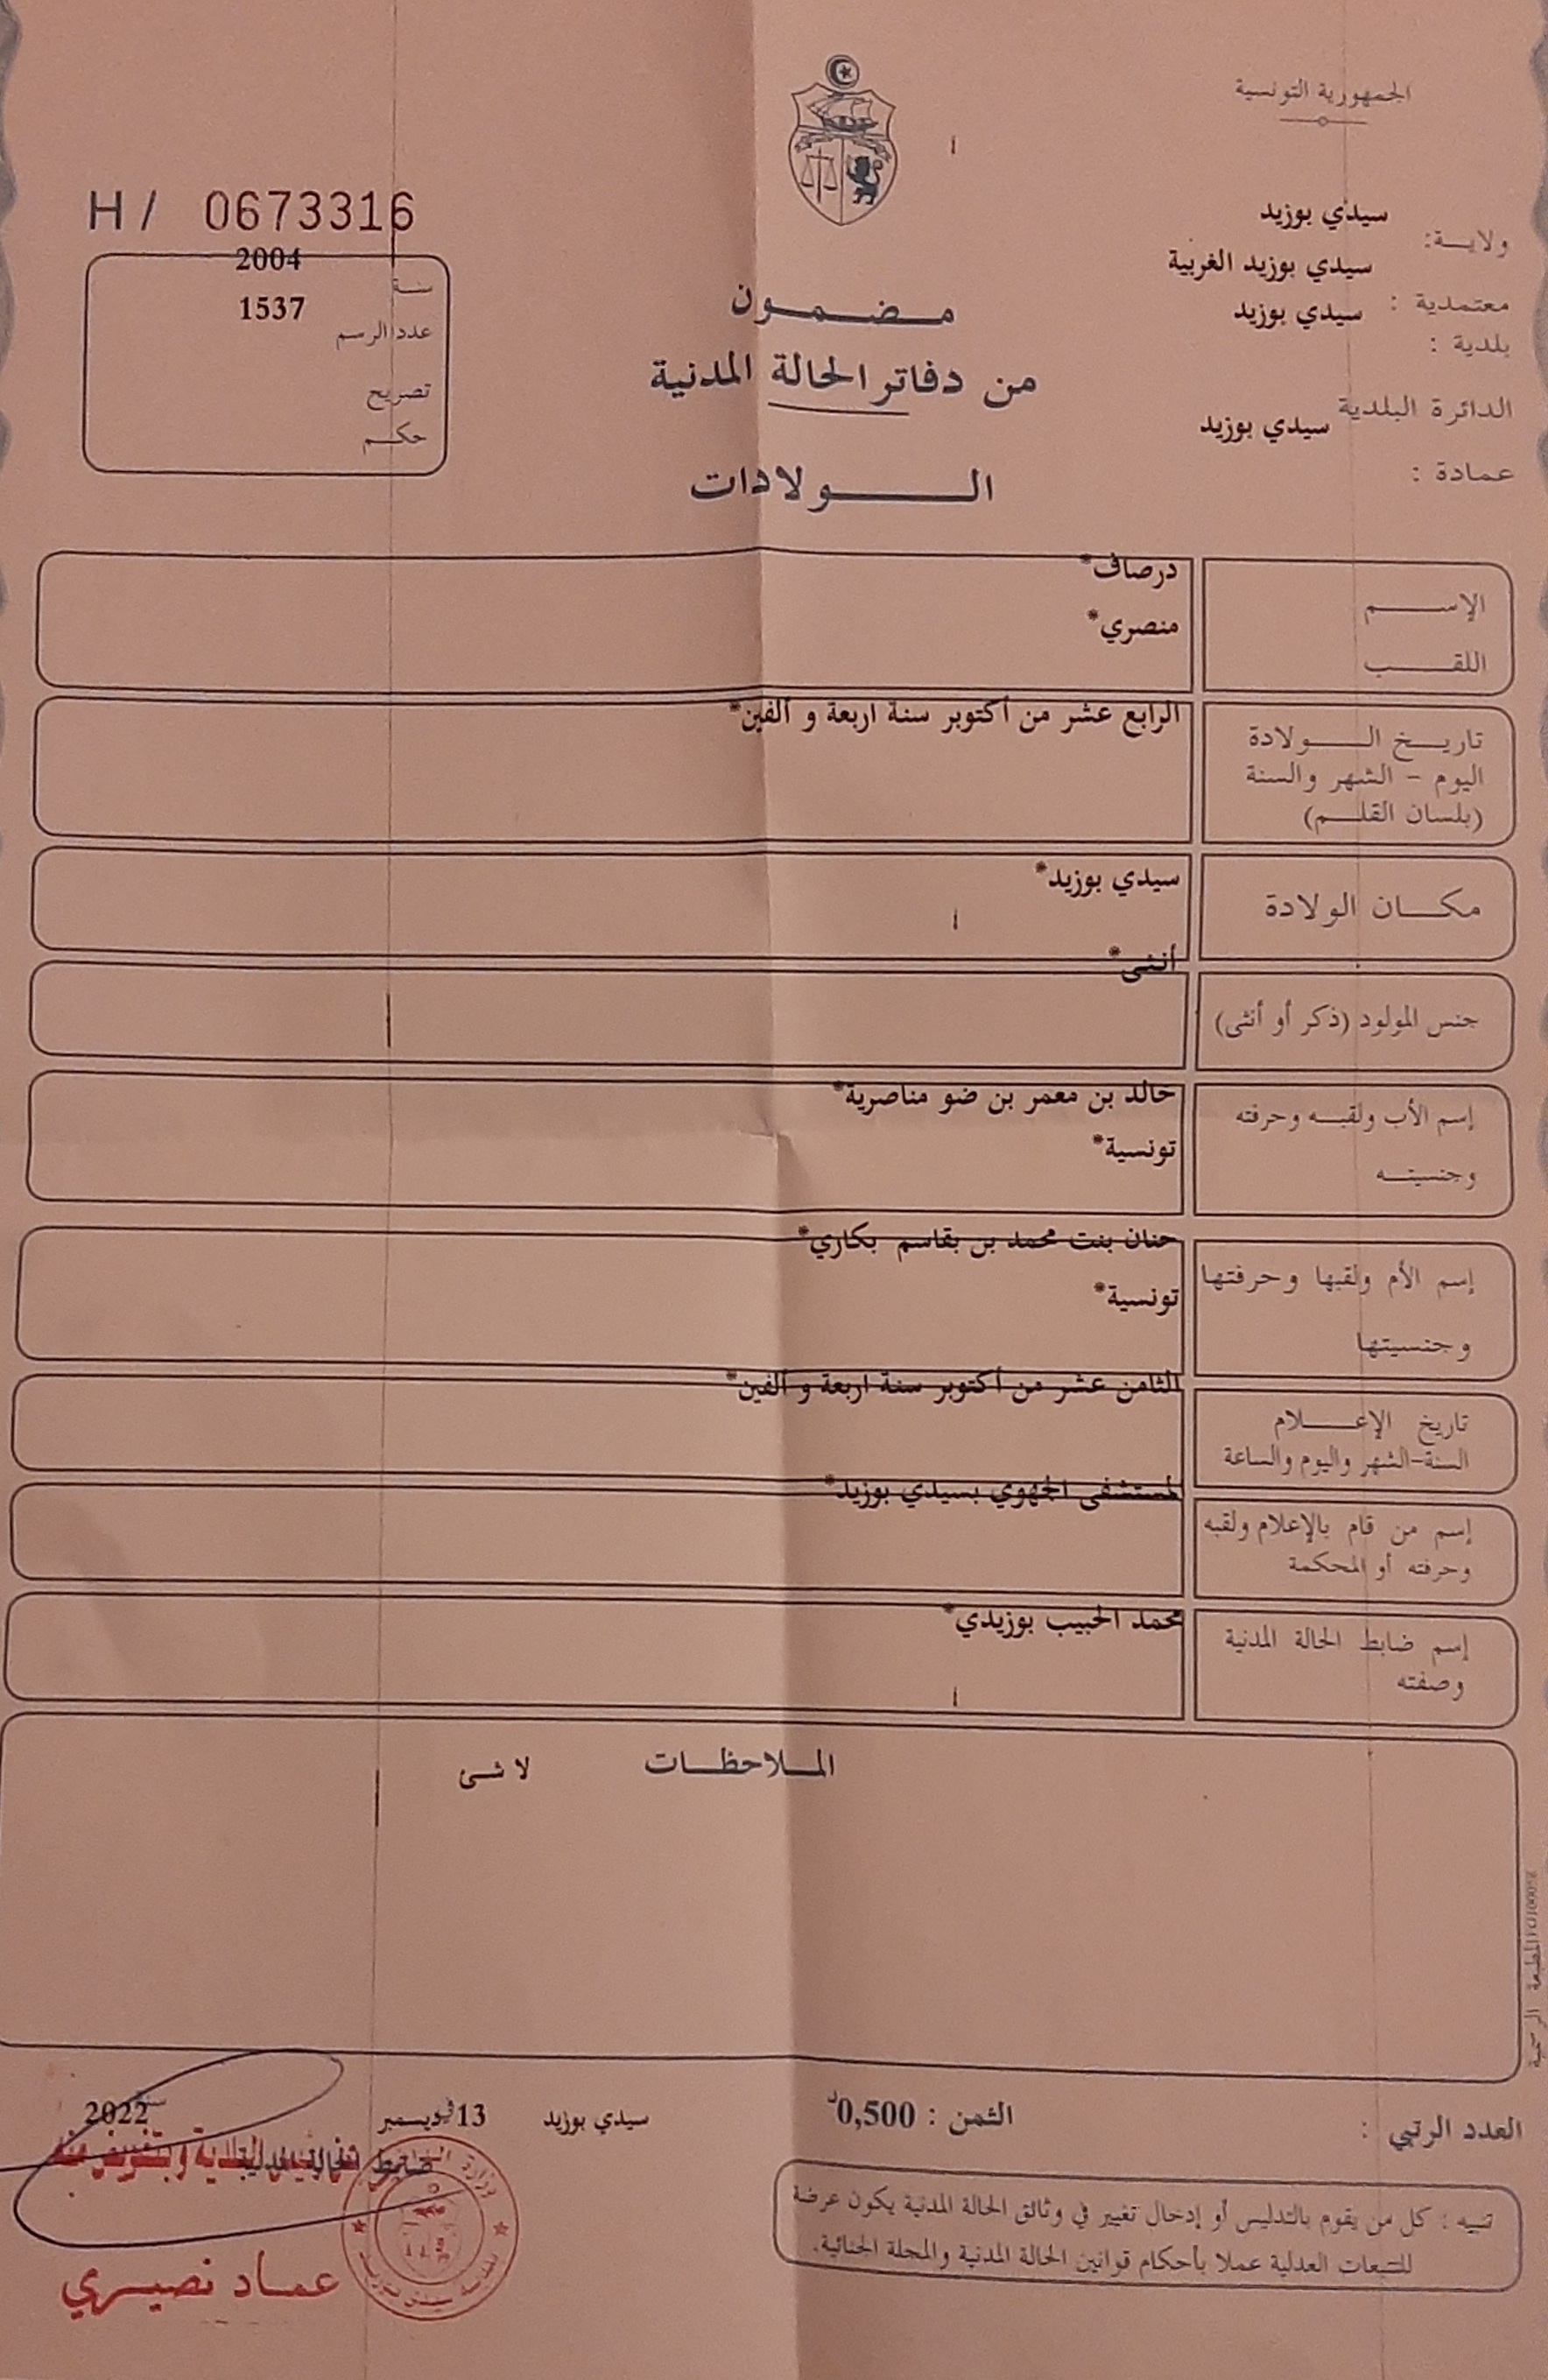 الجمهورية التونسية
ولاية: سيدي بوزيد
معتمدية : سيدي بوزيد الغربية
بلدية : سيدي بوزيد
الدائرة البلدية سيدي بوزيد
عمادة :
H/ 0673316
سنة 2004
عدد الرسم 1537
تصريح
حكم
مضمون
من دفاتر الحالة المدنية
الولادات
الإسم درصاف*
اللقب منصري*
تاريخ الولادة الرابع عشر من أكتوبر سنة اربعة و الفين*
اليوم - الشهر والسنة
(بلسان القلم)
مكان الولادة سيدي بوزيد*
جنس المولود (ذكر أو أنثى) أنثى*
إسم الأب ولقبه وحرفته خالد بن معمر بن ضو مناصرية*
وجنسيته تونسية*
إسم الأم ولقبها وحرفتها حنان بنت محمد بن بقاسم بكاري*
وجنسيتها تونسية*
تاريخ الإعلام الثامن عشر من أكتوبر سنة اربعة و الفين*
السنة-الشهر واليوم والساعة
إسم من قام بالإعلام ولقبه لمستشفى الجهوي بسيدي بوزيد*
وحرفته أو المحكمة
إسم ضابط الحالة المدنية محمد الحبيب بوزيدي*
وصفته
الملاحظات لا شئ
المطبعة الرسمية
العدد الرتبي :
الثمن : 0,500د
سيدي بوزيد في 13 ديسمبر سنة 2022
ضابط الحالة المدنية
وبتفويض منه
عماد نصيري
تنبيه : كل من يقوم بالتدليس أو إدخال تغيير في وثائق الحالة المدنية يكون عرضة
للتتبعات العدلية عملا بأحكام قوانين الحالة المدنية والمجلة الجنائية.